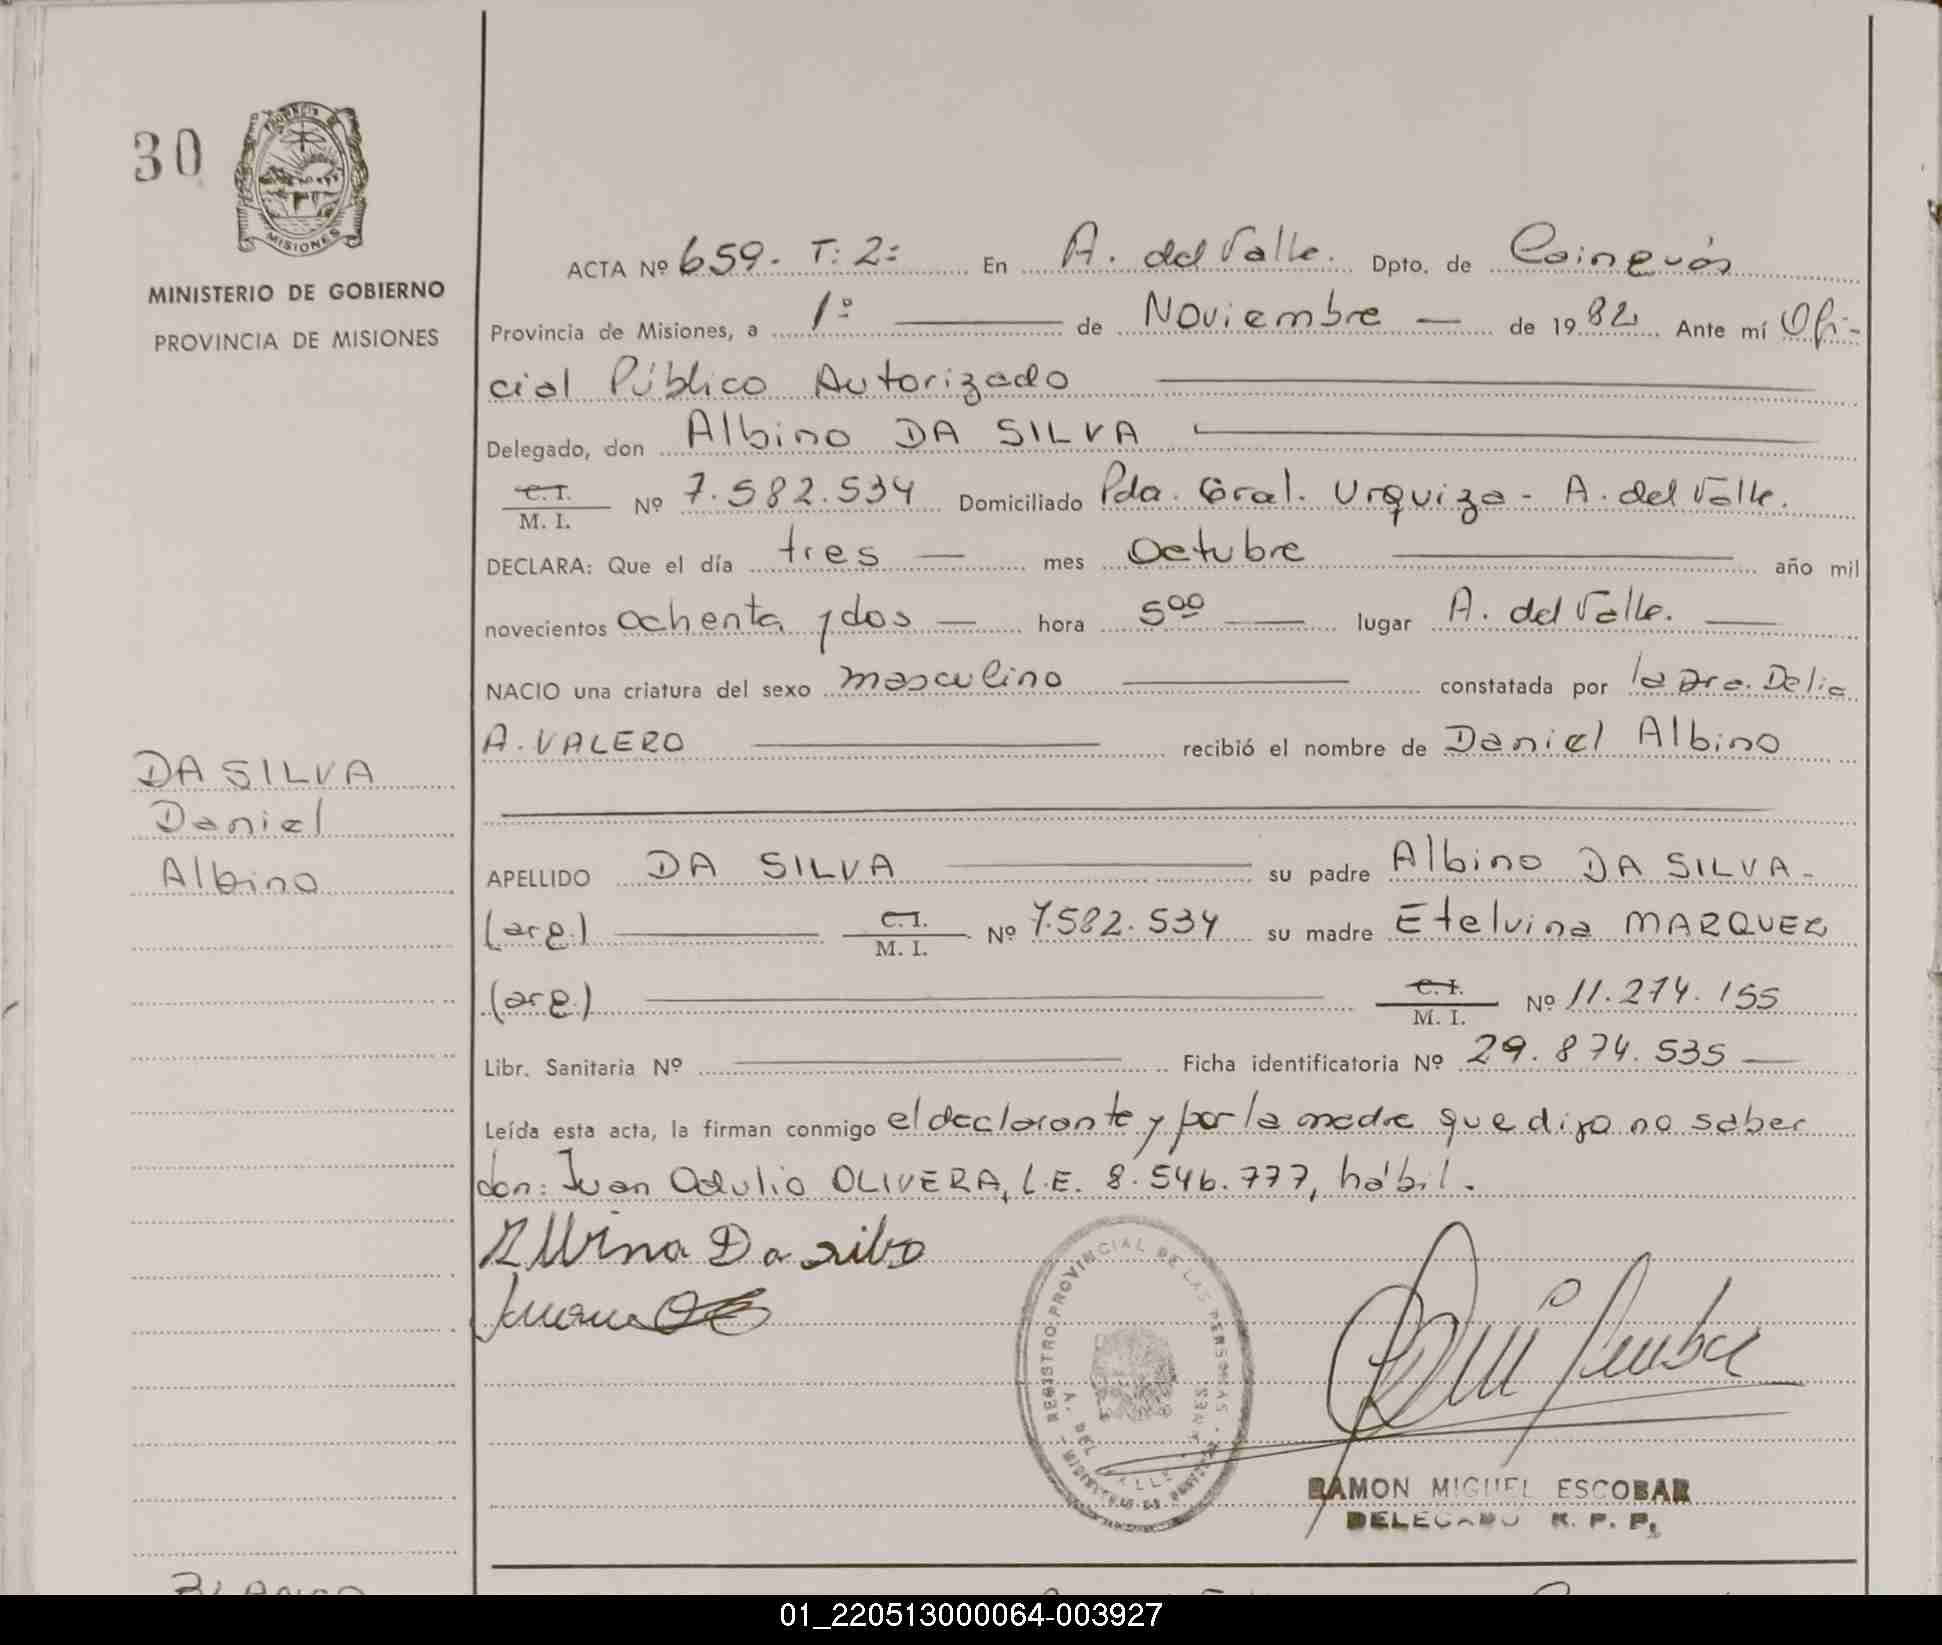 30
PROVINCIA DE
MISIONES
MINISTERIO DE GOBIERNO
PROVINCIA DE MISIONES
ACTA Nº 659. T: 2= En A. del Valle. Dpto. de Cainguás
Provincia de Misiones, a 1º de Noviembre de 1982 Ante mí Ofi-
cial Público Autorizado
Delegado, don Albino DA SILVA
C.I. M. I. Nº 7.582.534 Domiciliado Pda. Gral. Urquiza - A. del Valle.
DECLARA: Que el día tres mes Octubre año mil
novecientos ochenta y dos hora 5⁰⁰ lugar A. del Valle.
NACIO una criatura del sexo masculino constatada por la Dra. Delia
A. VALERO recibió el nombre de Daniel Albino
DA SILVA
Daniel
Albino
APELLIDO DA SILVA su padre Albino DA SILVA-
(arg.) C.I. M. I. Nº 7.582.534 su madre Etelvina MARQUEZ
(arg.) C.I. M. I. Nº 11.274.155
Libr. Sanitaria Nº Ficha identificatoria Nº 29.874.535
Leída esta acta, la firman conmigo el declarante y por la madre que dijo no saber
don: Juan Odulio OLIVERA, L.E. 8.546.777, hábil.
Albino Da silva
Juan
REGISTRO PROVINCIAL DE LAS PERSONAS
A. DEL VALLE
RAMON MIGUEL ESCOBAR
DELEGADO R. P. P.
BLANCO
01_220513000064-003927